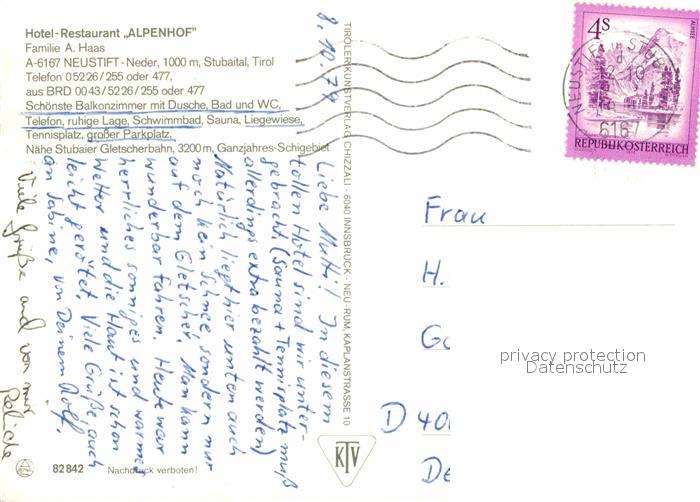 Hotel-Restaurant „ALPENHOF"
Familie A. Haas
A-6167 NEUSTIFT-Neder, 1000 m, Stubaital, Tirol
Telefon 05226/255 oder 477,
aus BRD 0043/5226/255 oder 477
Schönste Balkonzimmer mit Dusche, Bad und WC,
Telefon, ruhige Lage, Schwimmbad, Sauna, Liegewiese,
Tennisplatz, großer Parkplatz.
Nähe Stubaier Gletscherbahn, 3200 m, Ganzjahres-Schigebiet
8.10.79
Liebe Mutti! In diesem
tollen Hotel sind wir unter-
gebracht (Sauna + Tennisplatz muß
allerdings extra bezahlt werden)
Natürlich liegt hier unten auch
noch kein Schnee, sondern nur
auf dem Gletscher. Man kann
wunderbar fahren. Heute war
herrliches sonniges und warmes
Wetter und die Haut ist schon
leicht gerötet. Viele Grüße, auch
an Sabine, von Deinem Rolf.
Viele Grüße auch von mir
82842 Nachdruck verboten!
TIROLER KUNSTVERLAG CHIZZALI · 6040 INNSBRUCK - NEU-RUM, KAPLANSTRASSE 10
KTV
4S
ALMSEE
REPUBLIK ÖSTERREICH
6167
Frau
H.
Ga
D 40
De
privacy protection
Datenschutz